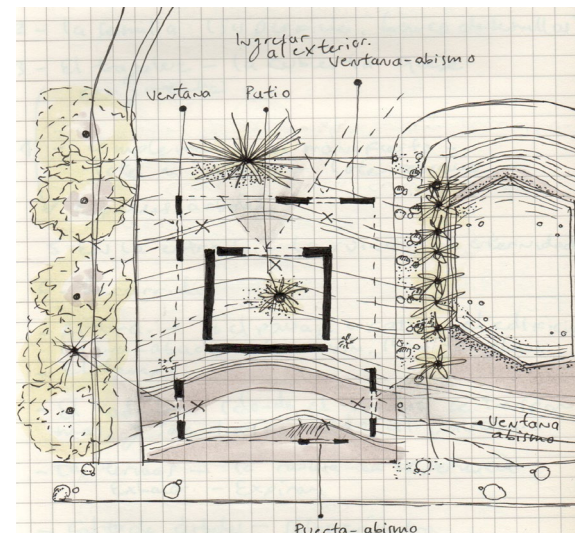 Ingresar
al exterior.
Ventana-abismo
Ventana
Patio
Ventana
abismo
Puerta-abismo